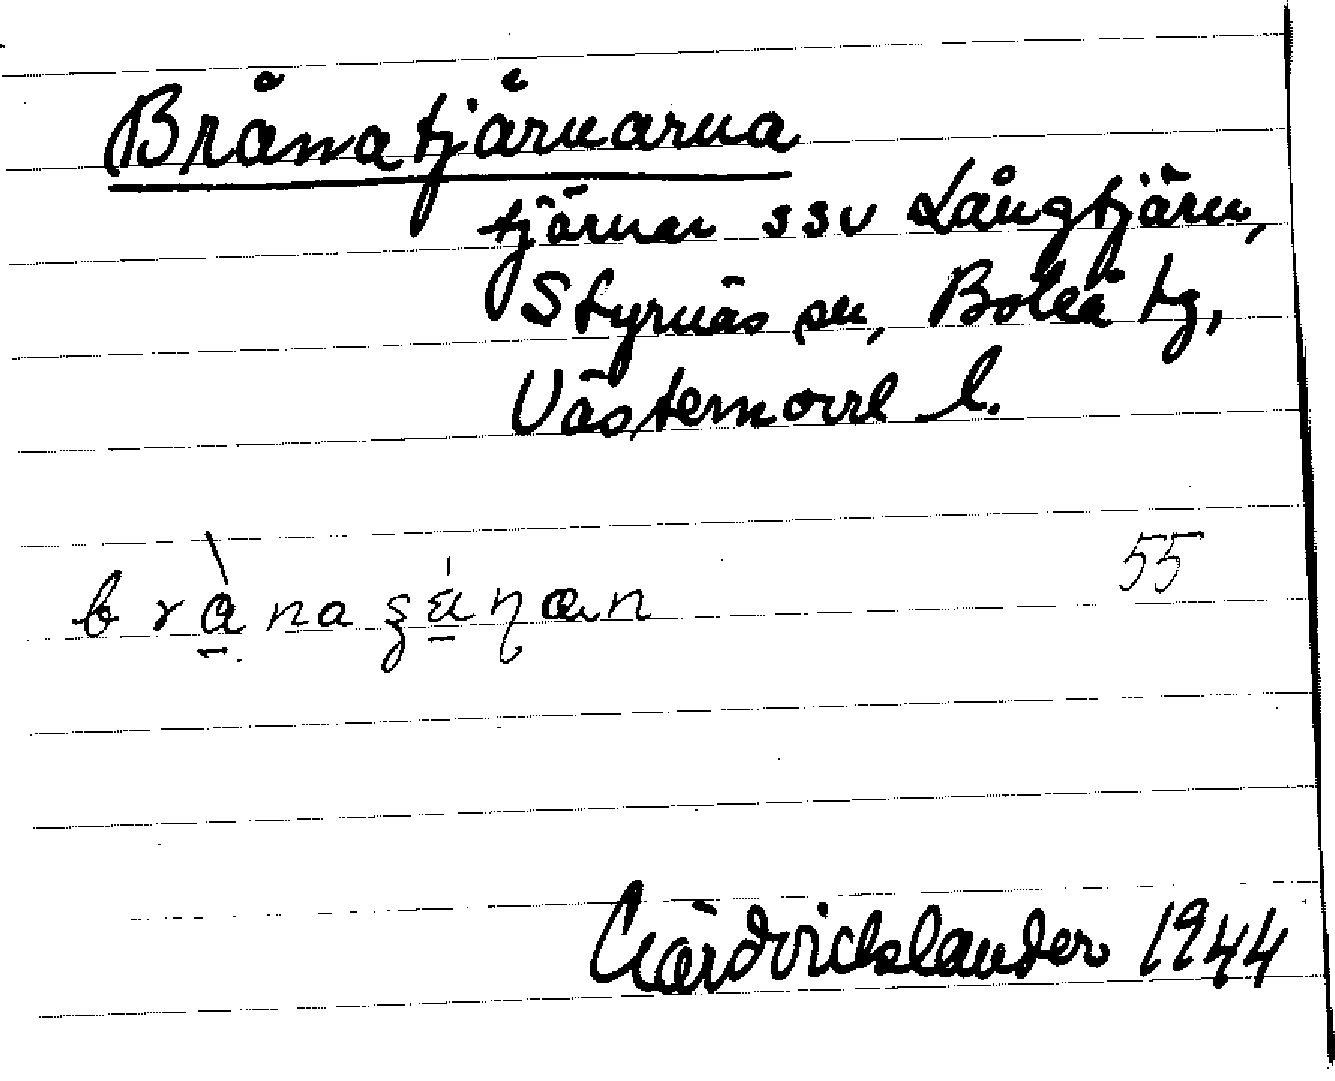 Brånatjärnarna
tjärnar SSV Långtjärn,
Styrnäs sn, Boteå tg,
Västernorrl l.
55
1944